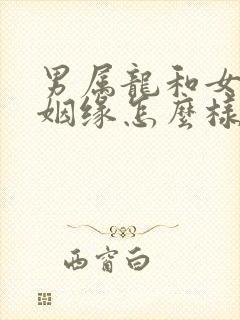 男属龍和女
姻缘怎麼樣
西窗白